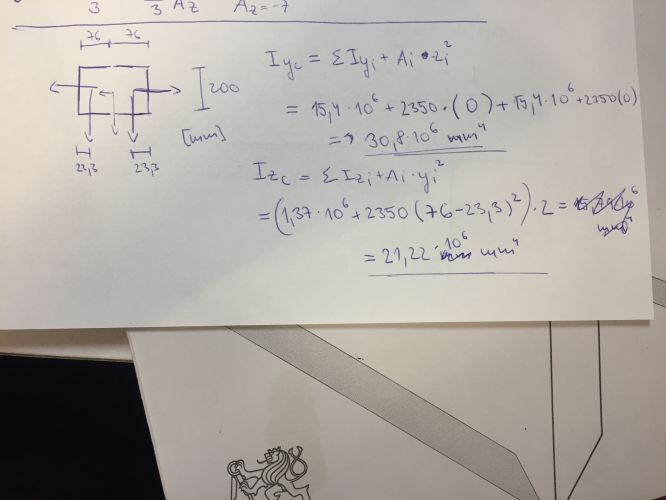 3 3 Az Az = -7
76 76
200
[mm]
23,3 23,3
Iyc = ΣIyi + Ai · zi²
= 15,4 · 10⁶ + 2350 · (0) + 15,4 · 10⁶ + 2350(0)
=> 30,8 · 10⁶ mm⁴
Izc = ΣIzi + Ai · yi²
= (1,37 · 10⁶ + 2350 (76 - 23,3)²) · 2 =
= 21,22 · 10⁶ mm⁴